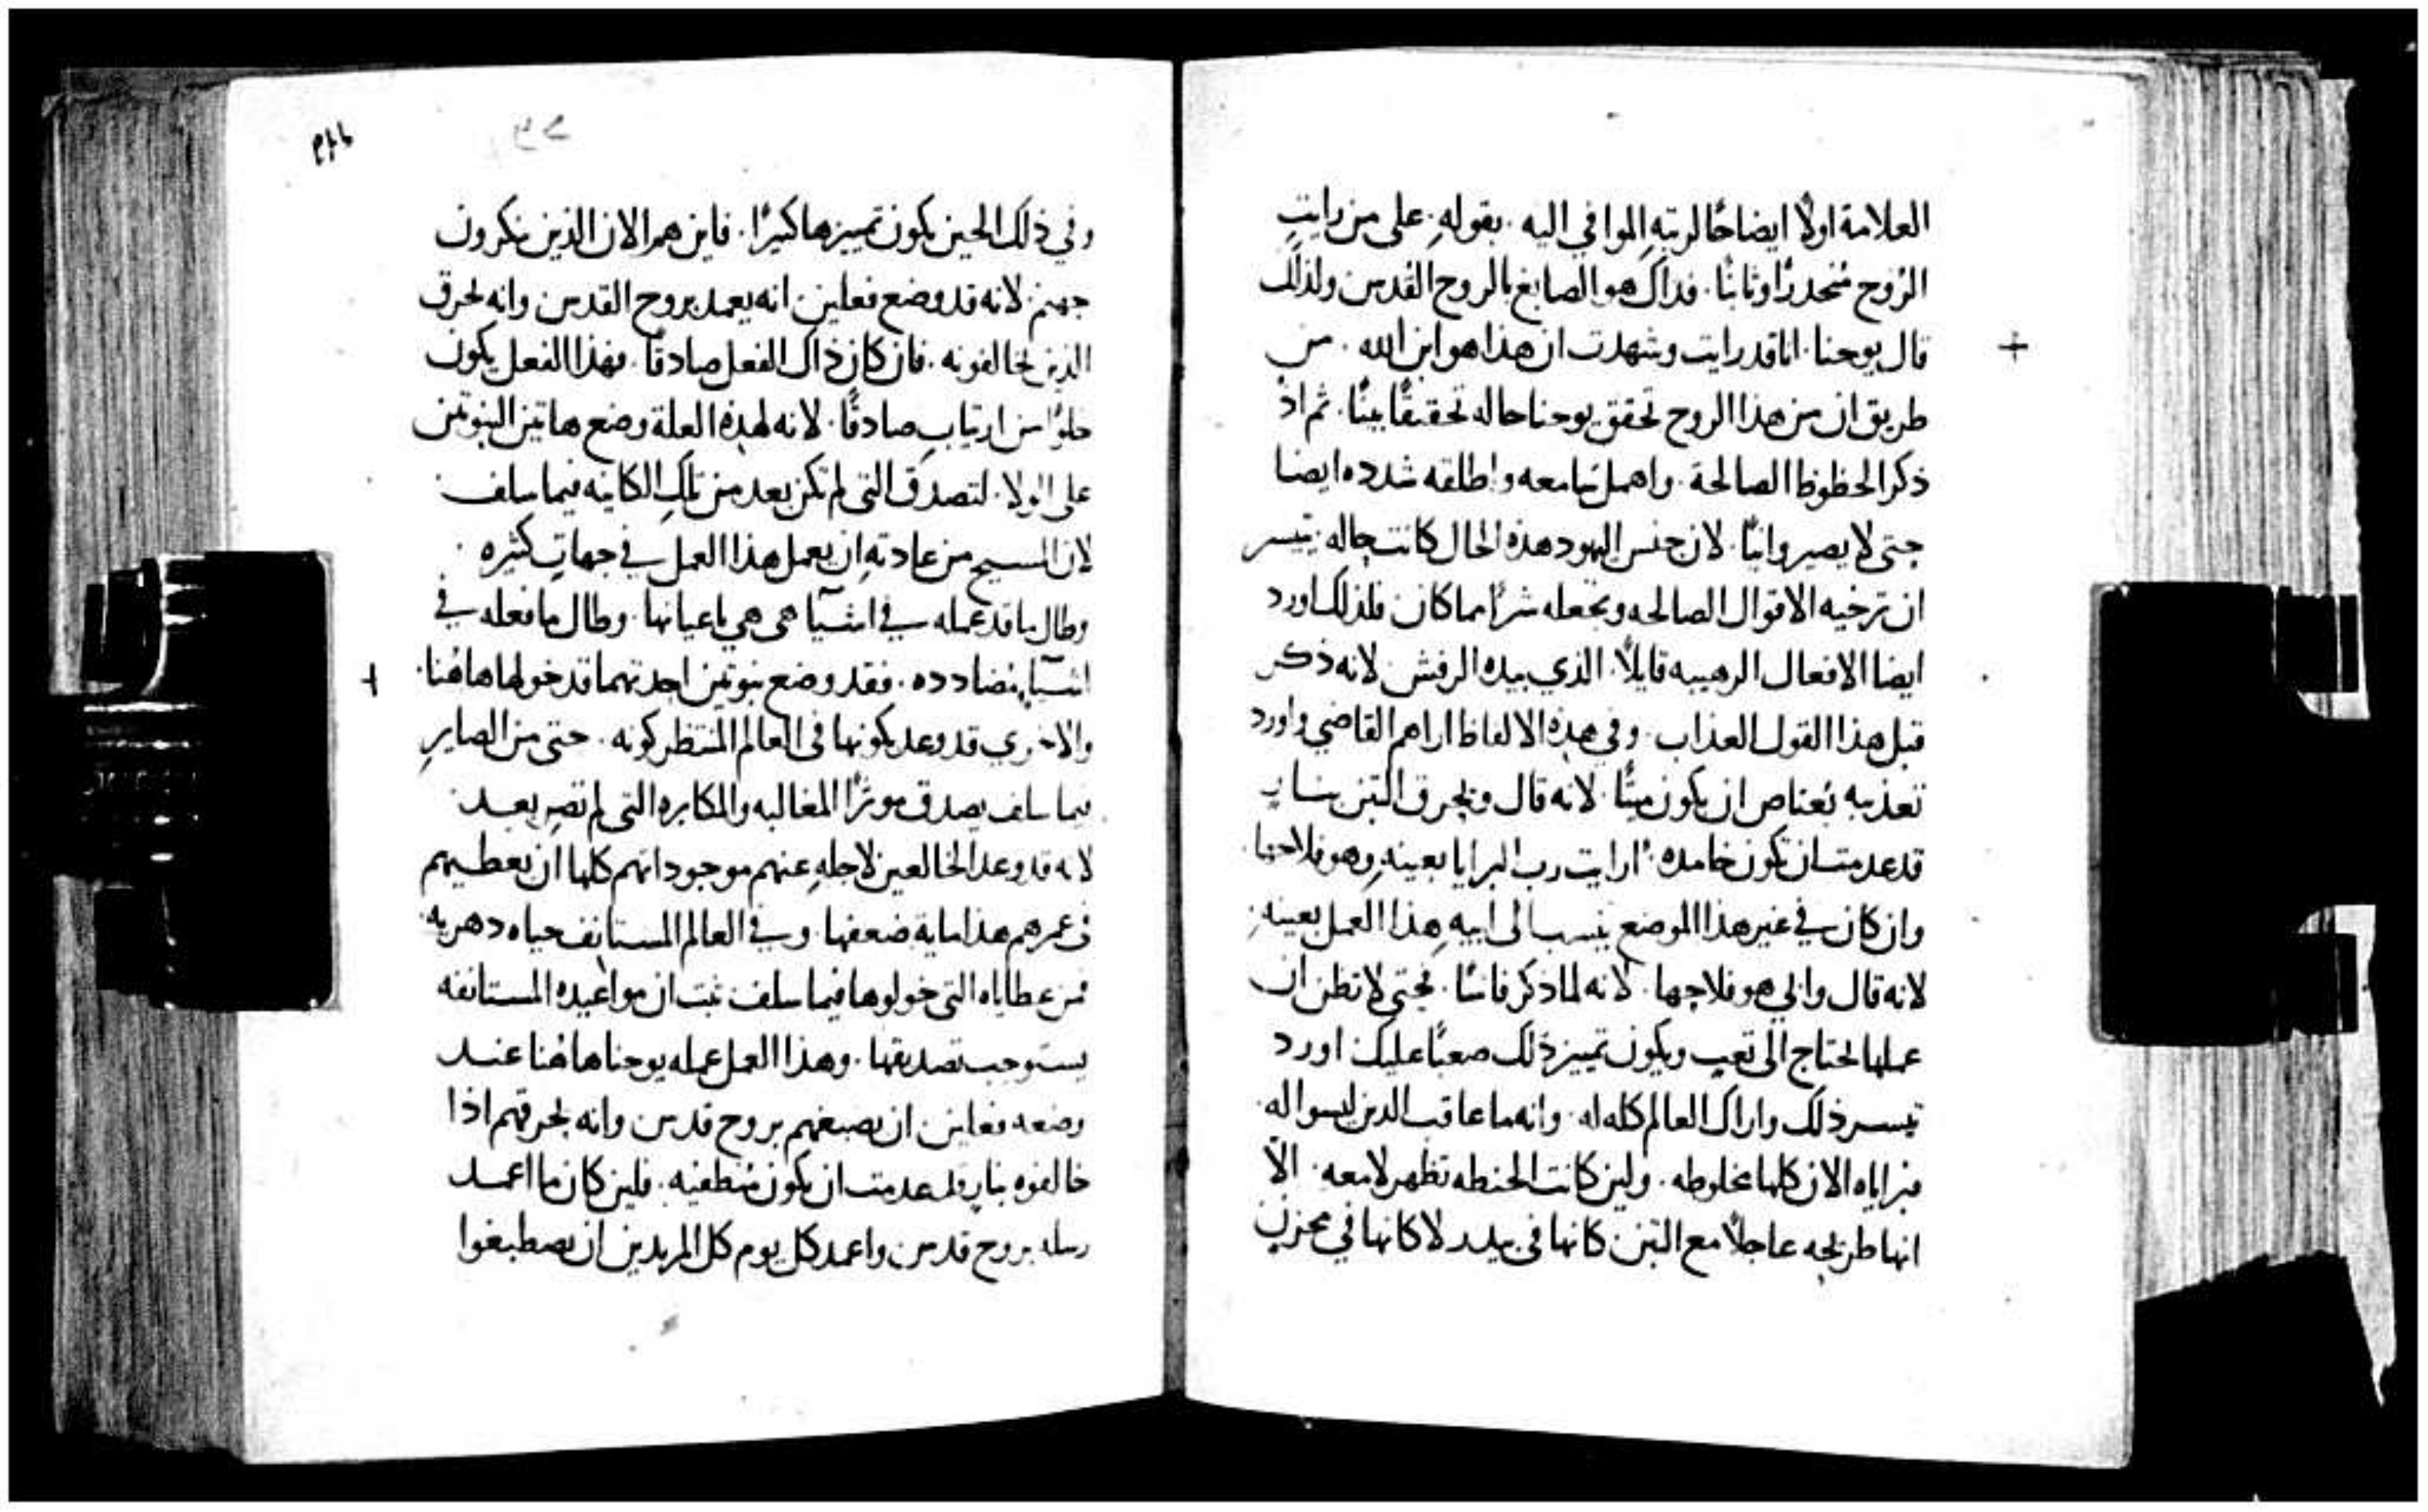 العلامة اولًا ايضاحًا لرتبةِ الموافي اليه . بقولهِ . على من رايتِ
الرُوح مُنحدرًا وثابتًا . فداكَ هو الصابغ بالروح القدس ولذلك
قال يوحنا . انا قد رايت وشهدت ان هذا هو ابن الله . من
طريق ان من هذا الروح تحقق يوحنا حاله تحقيقًا بينًا . ثم اذ
ذكر الحظوظ الصالحة . واهمل سامعه واطلقه شدده ايضا
حتى لا يصير وانيًا . لان جنس اليهود هذه الحال كانت حاله . يتيسر
ان ترخيه الاقوال الصالحه وتجعله شرًا مما كان فلذلك اورد
ايضا الافعال الرهيبه قايلًا . الذي بيده الرفش . لانه ذكر
قبل هذا القول العذاب . وفي هذه الالفاظ اراهم القاضي واورد
تعذيبه يُعتاص ان يكون ميتًا . لانه قال ويحرق التبن بنارٍ
قد عدمت ان تكون خامده . ارايت رب البرايا بعينهِ وهو فلاحها .
وان كان في غير هذا الموضع ينسب الى ابيهِ هذا العمل بعينهِ .
لانه قال وابي هو فلاحها . لانه لما ذكر فاسًا . فحتى لا تظن ان
عملها يحتاج الى تعبٍ ويكون تمييز ذلك صعبًا عليك اورد
تيسر ذلك واراك العالم كله له . وانه ما عاقب الدين ليسوا له .
فبراياه الان كلها مخلوطه . ولين كانت الحنطه تظهر لامعه . الا
انها طريحه عاجلًا مع التبن كانها في بيدر لا كانها في مخزنٍ
٢٦٩
وفي ذلك الحين يكون تمييزها كبيرًا . فاين هم الان الذين ينكرون
جهنم . لانه قد وضع فعلين . انه يعمد بروح القدس وانه يحرق
الذين يخالفونه . فان كان ذاك الفعل صادقًا . فهذا الفعل يكون
خلوًا من ارتيابٍ صادقًا . لانه لهذه العلة وضع هاتين النبوتين
على الولا . لتصدق التي لم تكن بعد من تلك الكاينه فيما سلف .
لان المسيح من عادتهِ ان يعمل هذا العمل في جهاتٍ كثيره .
وطال ما قد عمله في اشيآ هي هي باعيانها . وطال ما فعله في
اشيآ متضادده . فقد وضع نبوتين احدتهما قد خولها هاهُنا .
والاخرى قد وعد بكونها في العالم المنتظر كونه . حتى من الصاير
فيما سلف يصدق موثرًا المغالبه والمكابره التي لم تصر بعد .
لانه قد وعد الخالعين لاجلهِ عنهم موجوداتهم كلها ان يعطيهم
في عمرهم هذا ماية ضعفها . وفي العالم المستانف حياه دهريه
فمن عطاياه التي خولوها فيما سلف ثبت ان مواعيده المستانفه
يستوجب تصديقها . وهذا العمل عمله يوحنا هاهُنا عند
وضعه فعلين ان يصبغهم بروح قدس وانه يحرقهم اذا
خالفوه بنارٍ قد عدمت ان يكون مُنطفيه . فلين كان ما اعمد
رسله بروح قدس واعمد كل يوم كل المريدين ان يصطبغوا